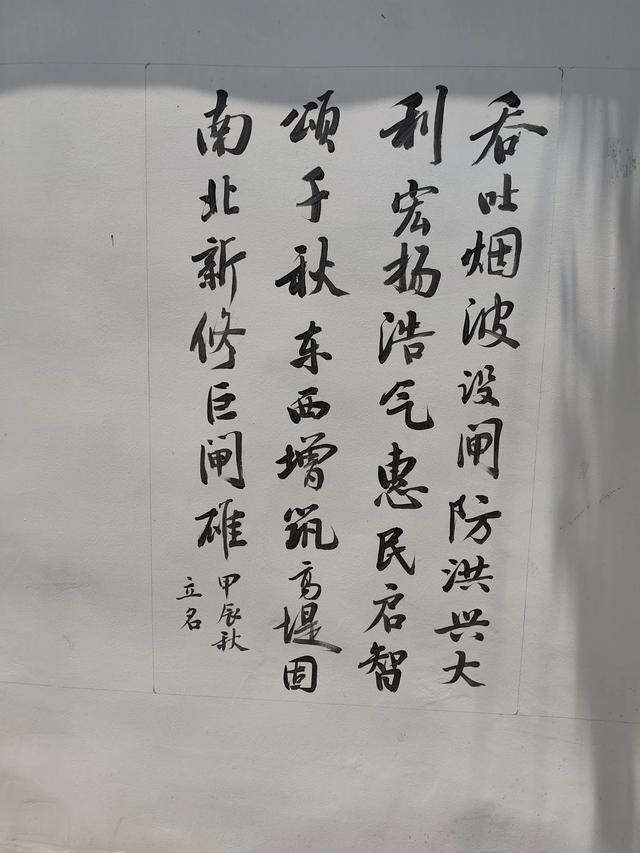 吞吐烟波设闸防洪兴大
利宏扬浩气惠民启智
颂千秋东西增筑高堤固
南北新修巨闸雄
甲辰秋
立名